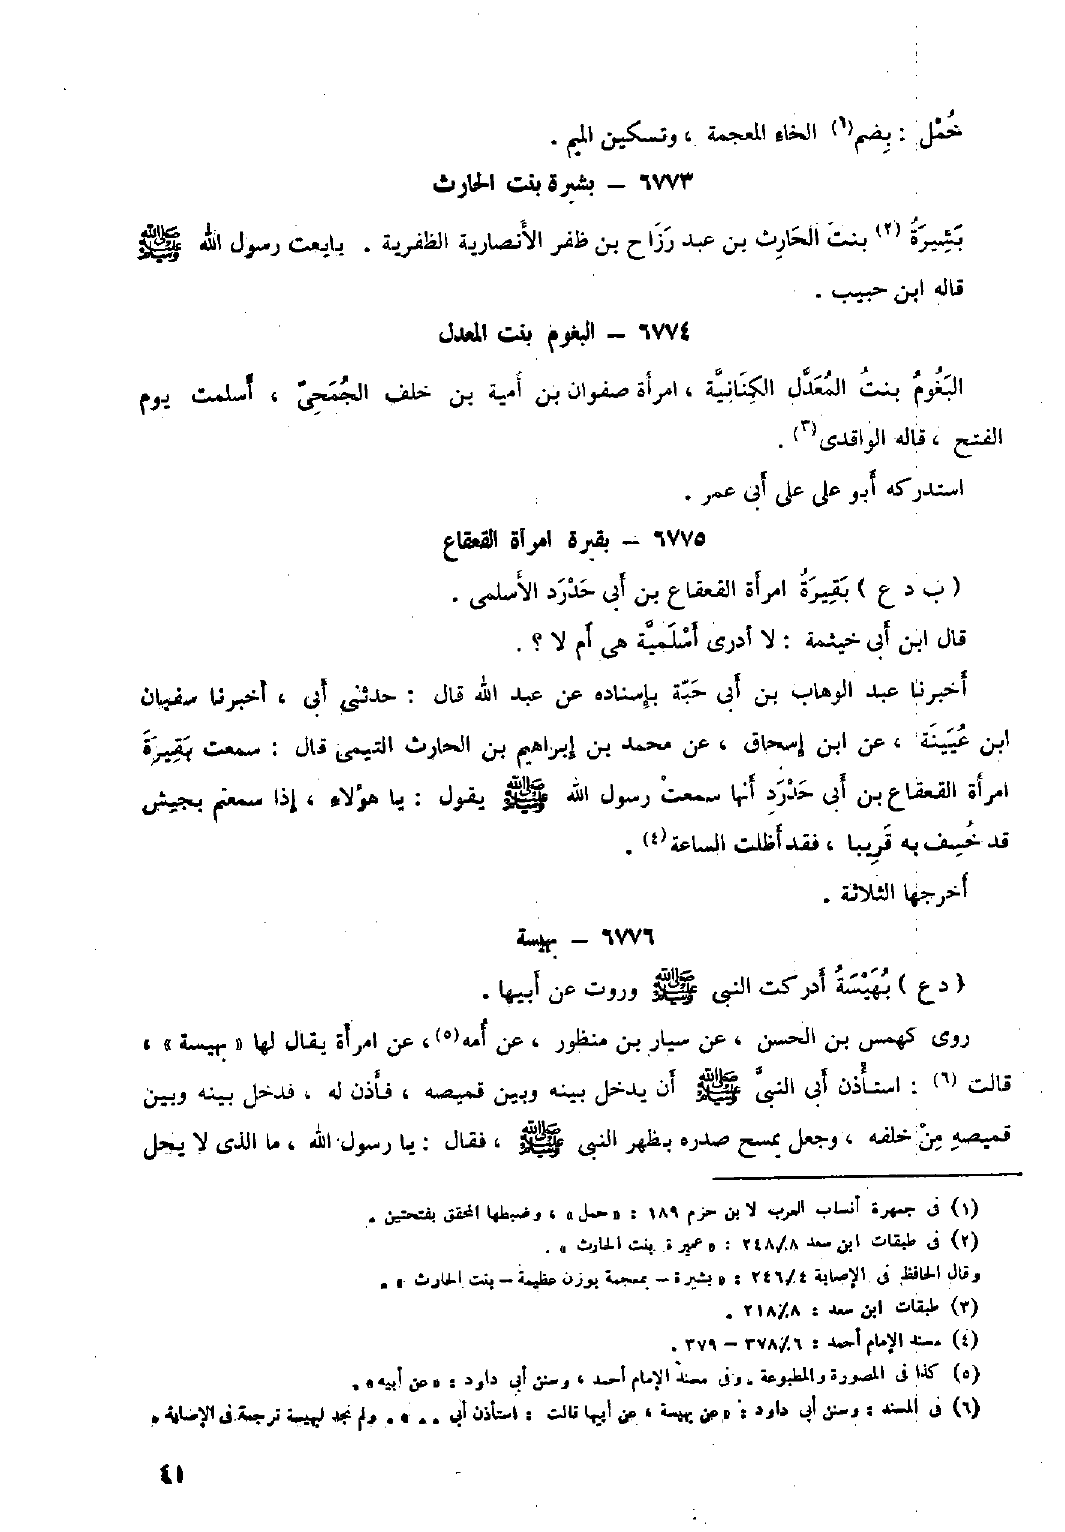 خُمْل : بِضم(١) الخاء المعجمة ، وتسكين الميم .
٦٧٧٣ – بشيرة بنت الحارث
بَشِيرَةُ (٢) بنت الحَارِث بن عبد رَزَاح بن ظفر الأَنصارية الظفرية . بايعت رسول الله ﷺ
قاله ابن حبيب .
٦٧٧٤ – البغوم بنت المعدل
البَغُومُ بنتُ المُعَدَّل الكِنَانِيَّة ، امرأة صفوان بن أُمية بن خلف الجُمَحِىّ ، أَسلمت يوم
الفتح ، قاله الواقدى(٣) .
استدركه أَبو على على أَبى عمر .
٦٧٧٥ – بقيرة امرأة القعقاع
( ب د ع ) بَقِيرَةُ امرأَة القعقاع بن أَبى حَدْرَد الأَسلمى .
قال ابن أَبى خيثمة : لا أدرى أَسْلَمِيَّة هى أَم لا ؟ .
أَخبرنا عبد الوهاب بن أَبى حَبّة بإِسناده عن عبد الله قال : حدثنى أَبى ، أَخبرنا سفيان
ابن عُيَينَة ، عن ابن إِسحاق ، عن محمد بن إِبراهيم بن الحارث التيمى قال : سمعت بَقِيرَةَ
امرأَة القعقاع بن أَبى حَدْرَدٍ أَنها سمعتْ رسول الله ﷺ يقول : يا هؤلاء ، إِذا سمعتم بجيش
قد خُسِف به قَرِيبا ، فقد أَظلت الساعة(٤) .
أَخرجها الثلاثة .
٦٧٧٦ – بهيسة
( د ع ) بُهَيْسَةُ أَدركت النبى ﷺ وروت عن أَبيها .
روى كهمس بن الحسن ، عن سيار بن منظور ، عن أُمه(٥)، عن امرأَة يقال لها « بهيسة » ،
قالت (٦) : استأْذن أَبى النبىَّ ﷺ أَن يدخل بينه وبين قميصه ، فأَذن له ، فدخل بينه وبين
قميصهِ مِنْ خلفه ، وجعل يمسح صدره بظهر النبى ﷺ ، فقال : يا رسول الله ، ما الذى لا يحل
(١) فى جمهرة أنساب العرب لابن حزم ١٨٩ : « حمل » ، وضبطها المحقق بفتحتين .
(٢) فى طبقات ابن سعد ٢٤٨/٨ : « عميرة بنت الحارث » .
وقال الحافظ فى الإصابة ٢٤٦/٤ : « بشيرة – بمعجمة بوزن عظيمة – بنت الحارث » .
(٣) طبقات ابن سعد : ٢١٨/٨ .
(٤) مسند الإمام أحمد : ٣٧٨/٦ – ٣٧٩ .
(٥) كذا فى المصورة والمطبوعة . وفى مسند الإمام أحمد ، وسنن أبى داود : « عن أبيه » .
(٦) فى المسند : وسنن أبى داود : « عن بهيسة ، عن أبيها قالت : استأذن أبى .. » . ولم نجد لبهيسة ترجمة فى الإصابة »
٤١